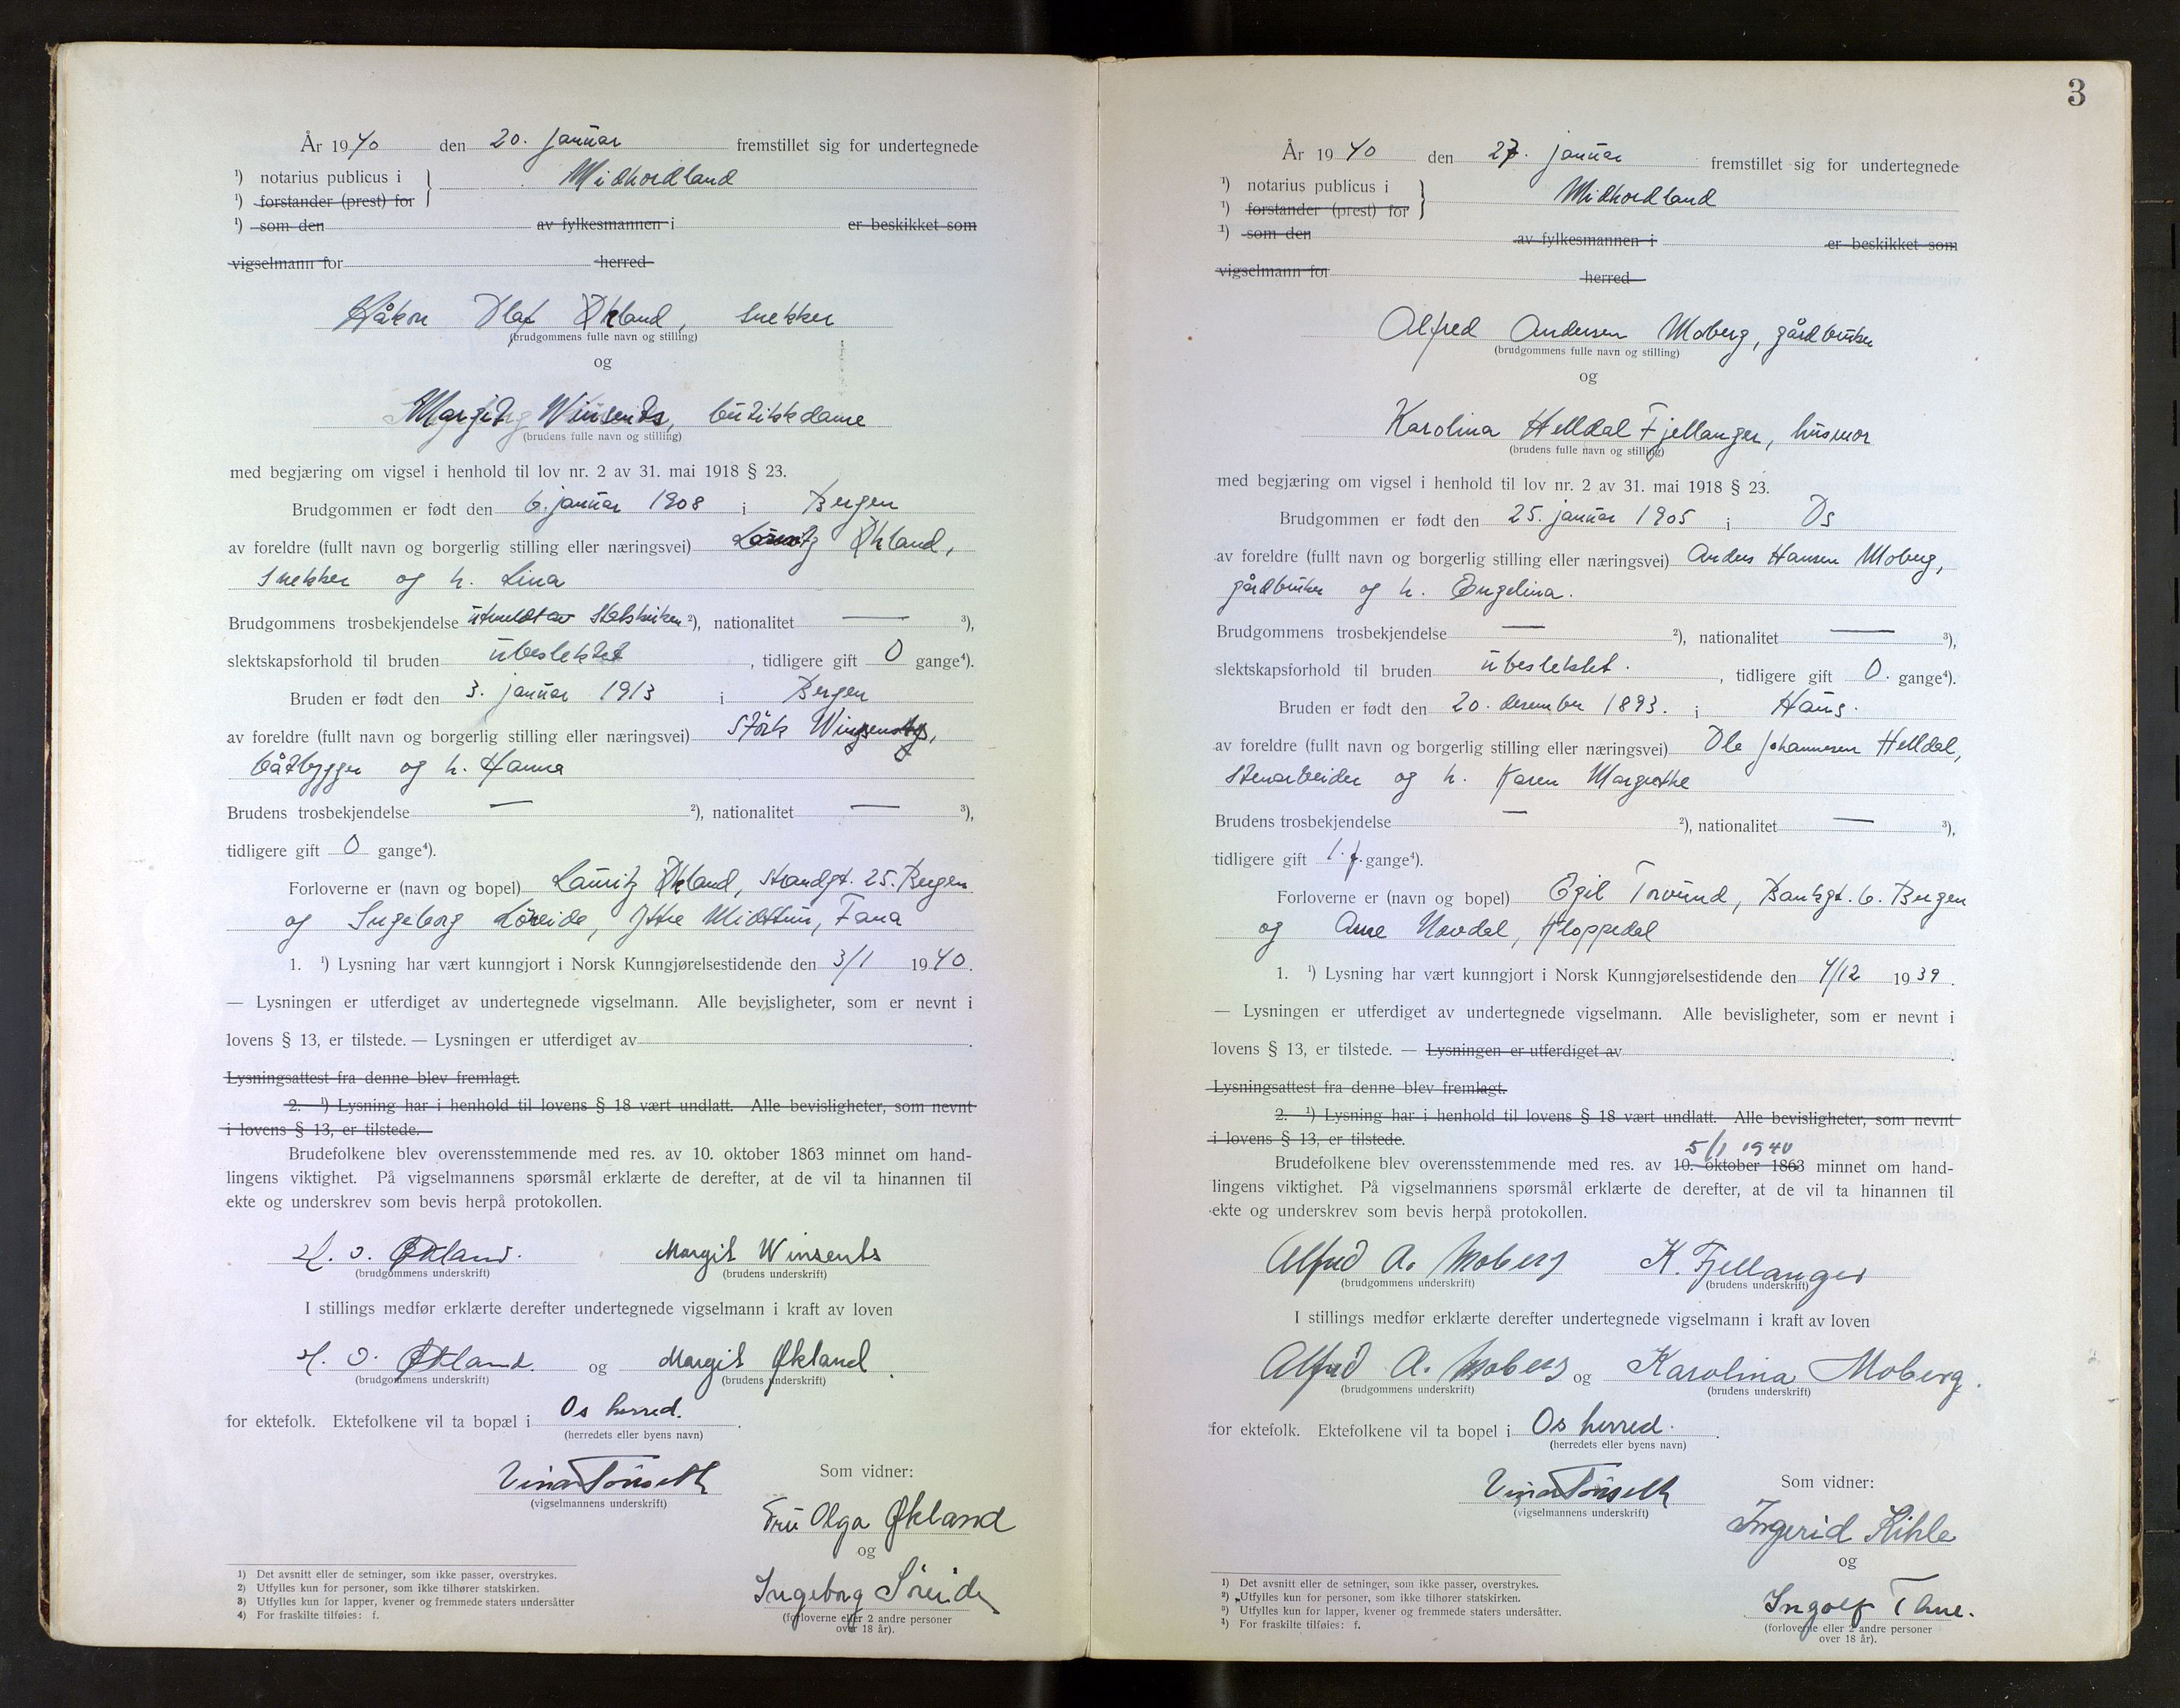 År 1940 den 20. januar fremstillet sig for undertegnede
¹) notarius publicus i } Midhordland
¹) forstander (prest) for
¹) som den av fylkesmannen i er beskikket som
vigselmann for herred
Håkon Olaf Økland, snekker
(brudgommens fulle navn og stilling)
og
Margit Winsents, butikkdame
(brudens fulle navn og stilling)
med begjæring om vigsel i henhold til lov nr. 2 av 31. mai 1918 § 23.
Brudgommen er født den 6. januar 1908 i Bergen
av foreldre (fullt navn og borgerlig stilling eller næringsvei) Lauritz Økland,
snekker og h. Lina
Brudgommens trosbekjendelse utmeldt av statskirken ²), nationalitet — ³),
slektskapsforhold til bruden ubeslektet, tidligere gift 0 gange⁴).
Bruden er født den 3. januar 1913 i Bergen
av foreldre (fullt navn og borgerlig stilling eller næringsvei) Störk
båtbygger og h. Hanna
Brudens trosbekjendelse — ²), nationalitet — ³),
tidligere gift 0 gange⁴).
Forloverne er (navn og bopel) Lauritz Økland, Strandgt. 25. Bergen
og Ingeborg Søreide, Ytre Midttun, Fana
1. ¹) Lysning har vært kunngjort i Norsk Kunngjørelsestidende den 3/1 1940.
— Lysningen er utferdiget av undertegnede vigselmann. Alle bevisligheter, som er nevnt i
lovens § 13, er tilstede. — Lysningen er utferdiget av .
Lysningsattest fra denne blev fremlagt.
2. ¹) Lysning har i henhold til lovens § 18 vært undlatt. Alle bevisligheter, som nevnt
i lovens § 13, er tilstede.
Brudefolkene blev overensstemmende med res. av 10. oktober 1863 minnet om hand-
lingens viktighet. På vigselmannens spørsmål erklærte de derefter, at de vil ta hinannen til
ekte og underskrev som bevis herpå protokollen.
H. O. Økland. Margit Winsents
(brudgommens underskrift) (brudens underskrift)
I stillings medfør erklærte derefter undertegnede vigselmann i kraft av loven
H. O. Økland. og Margit Økland.
(brudgommens underskrift) (brudens underskrift)
for ektefolk. Ektefolkene vil ta bopæl i Os herred.
(herredets eller byens navn)
Einar Tönseth
(vigselmannens underskrift)
Som vidner:
Fru Olga Økland
og
Ingeborg Söreide
(forloverne eller 2 andre personer
over 18 år).
1) Det avsnitt eller de setninger, som ikke passer, overstrykes.
2) Utfylles kun for personer, som ikke tilhører statskirken.
3) Utfylles kun for lapper, kvener og fremmede staters undersåtter
4) For fraskilte tilføies: f.
3
År 1940 den 27. januar fremstillet sig for undertegnede
¹) notarius publicus i } Midhordland
¹) forstander (prest) for
¹) som den av fylkesmannen i er beskikket som
vigselmann for herred
Alfred Andersen Moberg, gårdbruker
(brudgommens fulle navn og stilling)
og
Karolina Helldal Fjellanger, husmor
(brudens fulle navn og stilling)
med begjæring om vigsel i henhold til lov nr. 2 av 31. mai 1918 § 23.
Brudgommen er født den 25. januar 1905 i Os
av foreldre (fullt navn og borgerlig stilling eller næringsvei) Anders Hansen Moberg,
gårdbruker og h. Engelina.
Brudgommens trosbekjendelse — ²), nationalitet — ³),
slektskapsforhold til bruden ubeslektet., tidligere gift 0. gange⁴).
Bruden er født den 20. desember 1893. i Haus.
av foreldre (fullt navn og borgerlig stilling eller næringsvei) Ole Johannesen Helldal,
stenarbeider og h. Karen Margrethe
Brudens trosbekjendelse — ²), nationalitet — ³),
tidligere gift 1. f. gange⁴).
Forloverne er (navn og bopel) Egil Torvund, Bankgt. 6. Bergen
og Arne Navdal, Hoppedal
1. ¹) Lysning har vært kunngjort i Norsk Kunngjørelsestidende den 4/12 1939.
— Lysningen er utferdiget av undertegnede vigselmann. Alle bevisligheter, som er nevnt i
lovens § 13, er tilstede. — Lysningen er utferdiget av .
Lysningsattest fra denne blev fremlagt.
2. ¹) Lysning har i henhold til lovens § 18 vært undlatt. Alle bevisligheter, som nevnt
i lovens § 13, er tilstede.
5/1 1940
Brudefolkene blev overensstemmende med res. av 10. oktober 1863 minnet om hand-
lingens viktighet. På vigselmannens spørsmål erklærte de derefter, at de vil ta hinannen til
ekte og underskrev som bevis herpå protokollen.
Alfred A. Moberg K. Fjellanger
(brudgommens underskrift) (brudens underskrift)
I stillings medfør erklærte derefter undertegnede vigselmann i kraft av loven
Alfred A. Moberg og Karolina Moberg.
(brudgommens underskrift) (brudens underskrift)
for ektefolk. Ektefolkene vil ta bopel i Os herred.
(herredets eller byens navn)
Einar Tönseth
(vigselmannens underskrift)
Som vidner:
Ingerid Kihle
og
Ingolf Thue.
(forloverne eller 2 andre personer
over 18 år).
¹) Det avsnitt eller de setninger, som ikke passer, overstrykes.
²) Utfylles kun for personer, som ikke tilhører statskirken.
³) Utfylles kun for lapper, kvener og fremmede staters undersåtter.
⁴) For fraskilte tilføies: f.